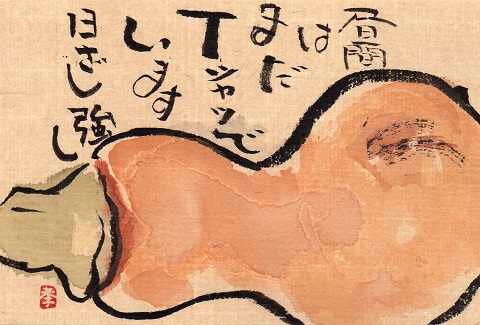 昼間
は
まだ
Tシャツで
います
日ざし強し
孝